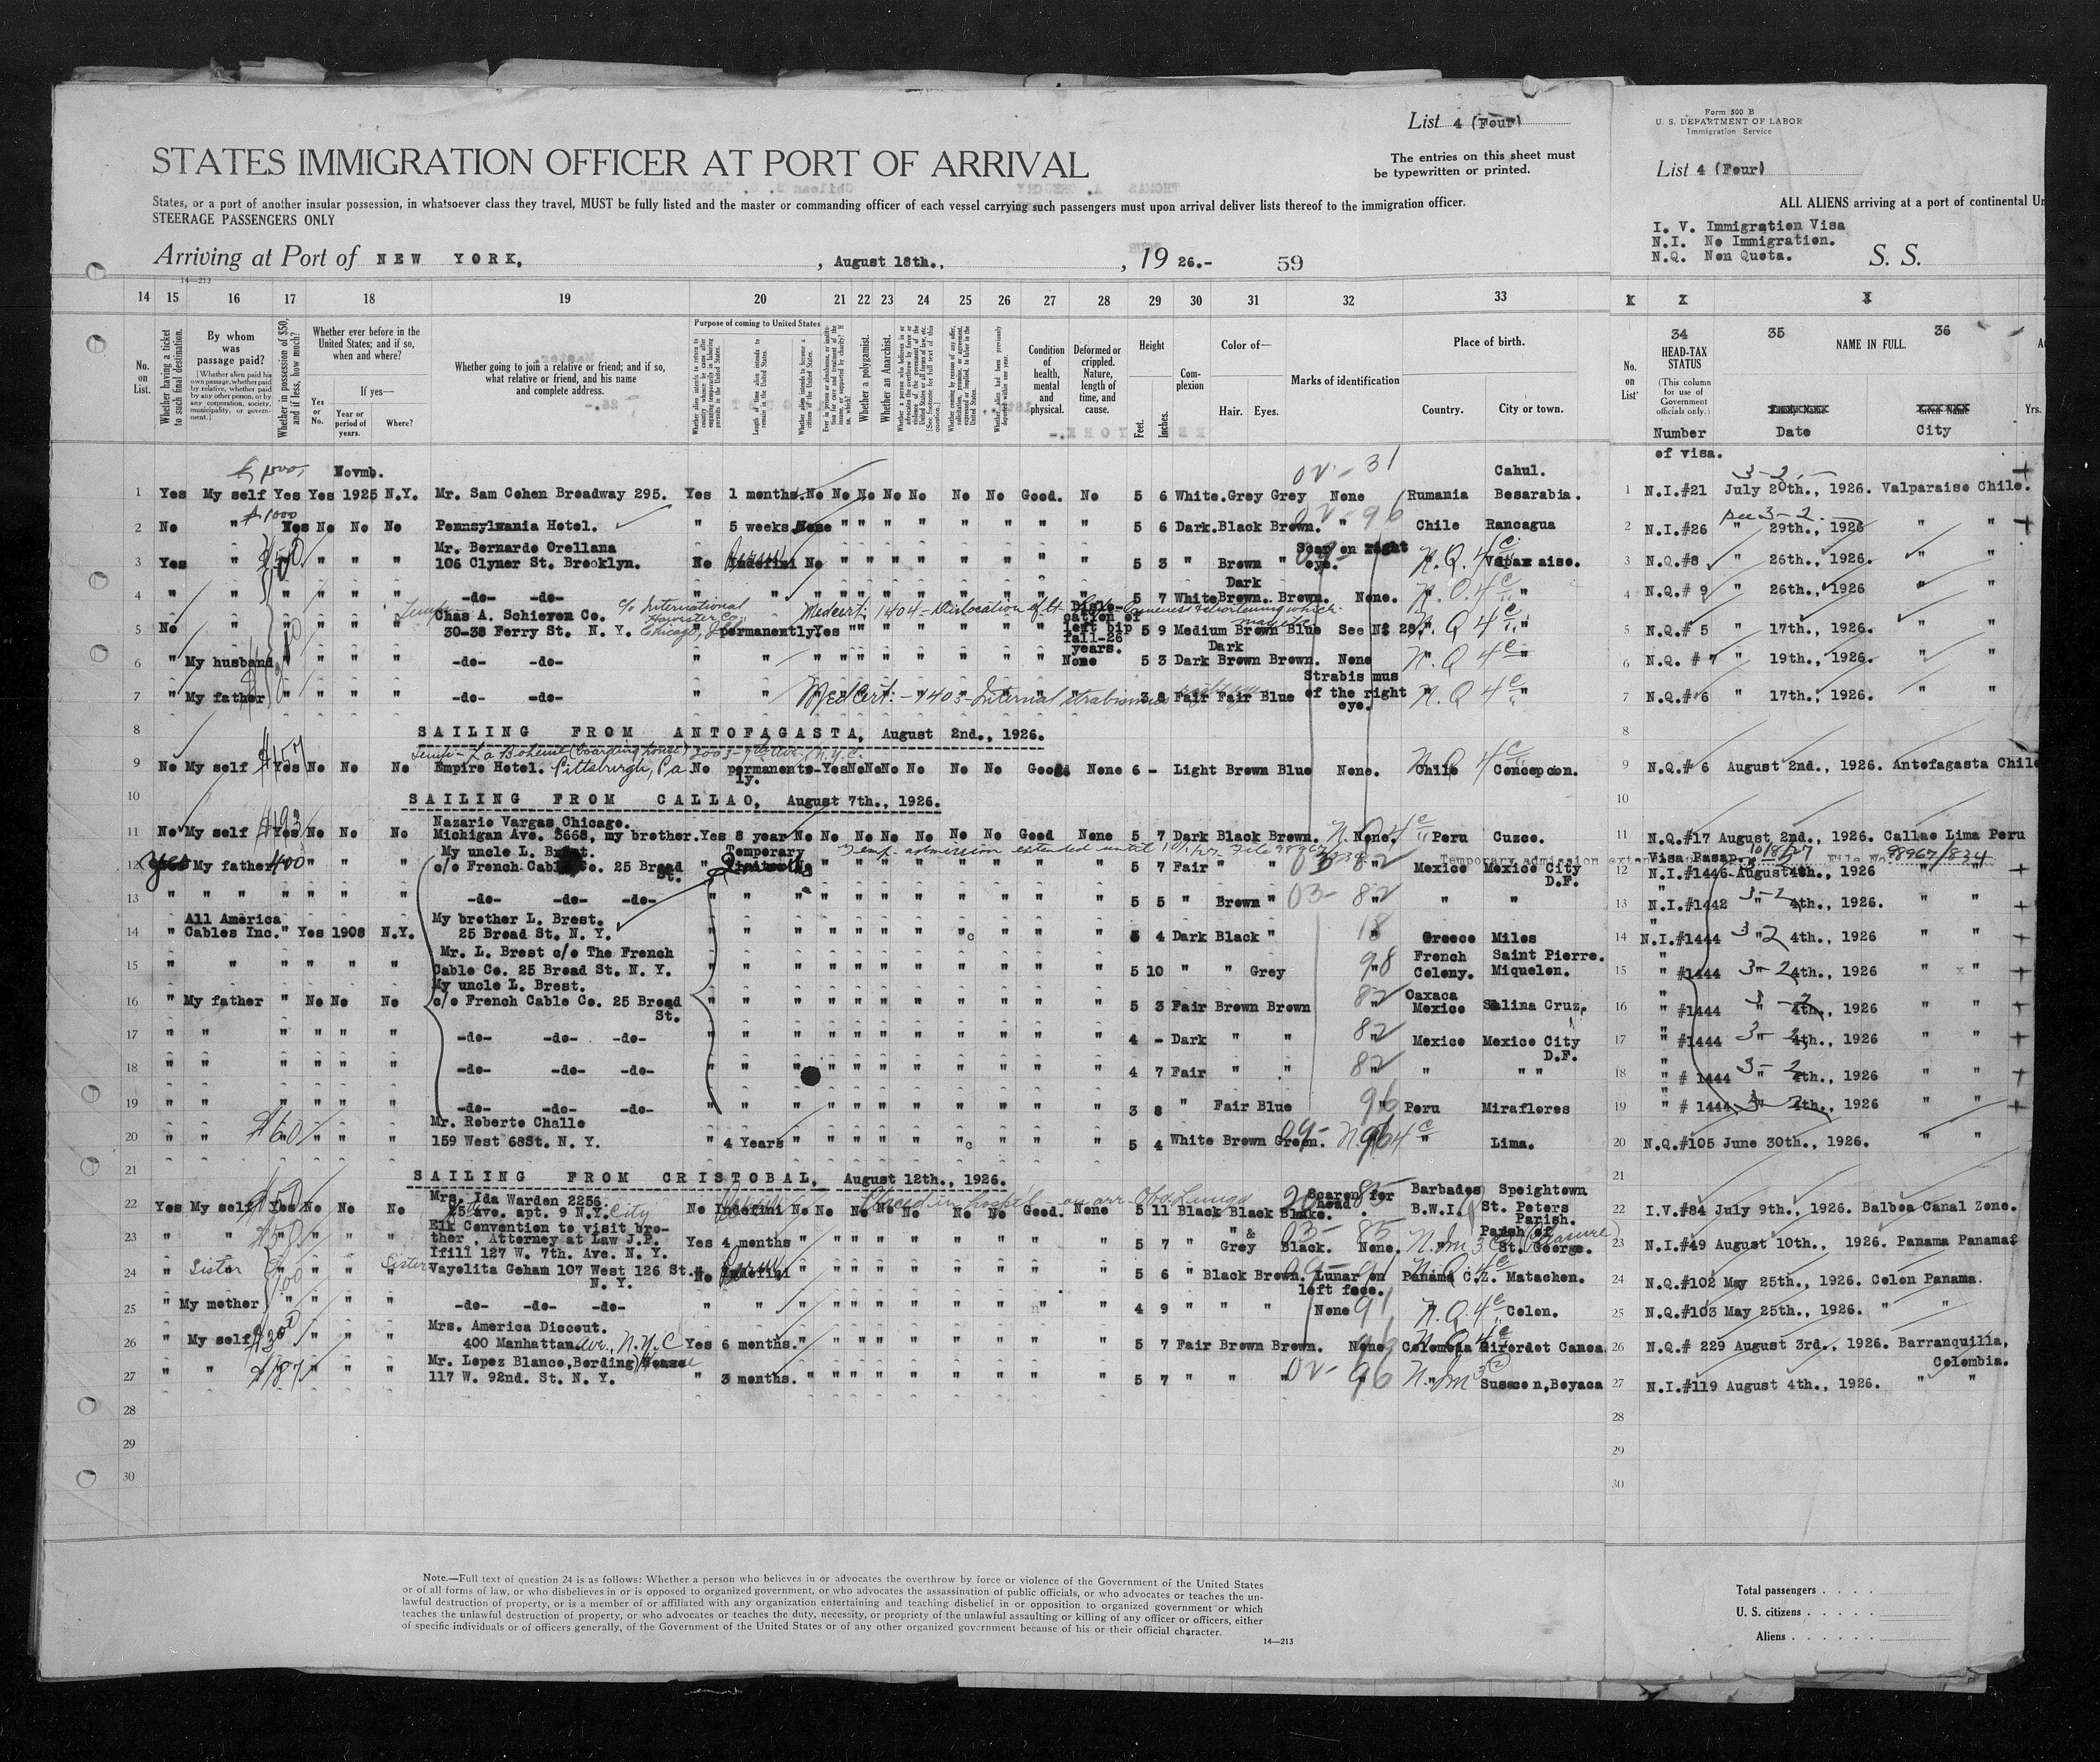 List 4 (Four)
STATES IMMIGRATION OFFICER AT PORT OF ARRIVAL
The entries on this sheet must
be typewritten or printed.
States, or a port of another insular possession, in whatsoever class they travel, MUST be fully listed and the master or commanding officer of each vessel carrying such passengers must upon arrival deliver lists thereof to the immigration officer.
STEERAGE PASSENGERS ONLY
Arriving at Port of NEW YORK, , August 18th., , 19 26.- 59
14—213
14 15 16 17 18 19 20 21 22 23 24 25 26 27 28 29 30 31 32 33
No. on List.
Whether having a ticket to such final destination.
By whom was passage paid?
(Whether alien paid his own passage, whether paid by relative, whether paid by any other person, or by any corporation, society, municipality, or government.)
Whether in possession of $50, and if less, how much?
Whether ever before in the United States; and if so, when and where?
Yes or No.
If yes—
Year or period of years.
Where?
Whether going to join a relative or friend; and if so, what relative or friend, and his name and complete address.
Purpose of coming to United States
Length of time alien intends to remain in the United States.
Whether alien intends to become a citizen of the United States.
Whether a polygamist.
Whether an Anarchist.
Condition of health, mental and physical.
Deformed or crippled. Nature, length of time, and cause.
Height
Feet. Inches.
Complexion
Color of—
Hair. Eyes.
Marks of identification
Place of birth.
Country. City or town.
$1000 Novmb. 0V - 31 Cahul.
1 Yes My self Yes Yes 1925 N.Y. Mr. Sam Cohen Broadway 295. Yes 1 months. No No No No No No No Good. No 5 6 White. Grey Grey None Rumania Besarabia.
$1000
2 No " Yes No No No Pennsylvania Hotel. " 5 weeks None " " " " " " " " 5 6 Dark. Black Brown. " Chile Rancagua
Mr. Bernardo Orellana Scar on right
3 Yes " " " " " 106 Clymer St. Brooklyn. No Indefini No " " " " " " " " 5 3 " Brown " eye. N.Q. 4c Valparaiso.
Dark
4 " " " " " " -do- -do- " " " " " " " " " " " 5 7 White Brown. Brown. None. N.Q. 4c "
Chas A. Schieven Co. c/o International Harvester Co. Chicago, Ill. Medcert: 1404 - Dislocation of Lt Dislocation of left hip fall-26 years.
5 No " " " " " 30-38 Ferry St. N. Y. " permanently. Yes " " " " " " " 5 9 Medium Brown Blue See Nº 28. N.Q 4c "
Dark
6 " My husband " " " " -do- -do- " " " " " " " " " " None 5 3 Dark Brown Brown. None N.Q 4c "
Strabismus
7 " My father " " " " -do- -do- " " Med Cert: - 1403 - Internal strabismus 3 8 Fair Fair Blue of the right eye. N.Q 4c "
8 SAILING FROM ANTOFAGASTA, August 2nd., 1926.
Temp - La Boheme (boarding house)
9 No My self $157 Yes No No No Empire Hotel. Pittsburgh, Pa No permanently. Yes No No No No No No Good None 6 - Light Brown Blue None. Chile Concepcion.
10 SAILING FROM CALLAO, August 7th., 1926.
Nazario Vargas Chicago.
11 No My self $193 Yes No No No Michigan Ave. 3668, my brother. Yes 8 year No No No No No No No Good None 5 7 Dark Black Brown. None. Peru Cuzco.
My uncle L. Brest. Temporary Temp. admission extended until
12 yes My father 400 " " " c/o French Cable Co. 25 Broad St. " " " " " " " " " " 5 7 Fair " " 03 82 Mexico Mexico City D.F.
13 " " " " " " -do- -do- -do- " " " " " " " " " " " 5 5 " Brown " 03- 82 " "
All America My brother L. Brest.
14 " Cables Inc. " Yes 1908 N.Y. 25 Broad St. N. Y. " " " " " " " " " " " 5 4 Dark Black " 18 Greece Milos
Mr. L. Brest c/o The French French Saint Pierre.
15 " " " " " " Cable Co. 25 Broad St. N. Y. " " " " " " " " " " " 5 10 " " Grey 98 Colony. Miquelon.
My uncle L. Brest. Oaxaca
16 " My father " No No No c/o French Cable Co. 25 Broad St. " " " " " " " " " " " 5 3 Fair Brown Brown 82 Mexico Salina Cruz.
17 " " " " " " -do- -do- -do- " " " " " " " " " " " 4 - Dark " " 82 Mexico Mexico City D.F.
18 " " " " " " -do- -do- -do- " " " " " " " " " " 4 7 Fair " " 82 " " "
19 " " " " " " -do- -do- -do- " " " " " " " " " " " 3 8 " Fair Blue 96 Peru Miraflores
Mr. Roberto Challe
20 " " $60 " " " 159 West 68St. N. Y. " 4 Years " " " " " " " " " 5 4 White Brown Green. " Lima.
21 SAILING FROM CRISTOBAL, August 12th., 1926.
Mrs. Ida Warden 2256 Placed in hospital on arr. Obs. Lungs Scar on fore Barbados Speightown
22 Yes My self $50 Yes No No No 85 ave. apt. 9 N.Y. City No Indefini No No No No No No No Good. None 5 11 Black Black Black head. B.W.I. St. Peters Parish.
Elk Convention to visit brother, Attorney at Law J.P. " & Parish of
23 " " $50 " " " Ifill 127 W. 7th. Ave. N. Y. Yes 4 months " " " " " " " " " 5 7 " Grey Black. None. St. George.
24 " Sister " " " Sister Vayolita Geham 107 West 126 St. N. Y. No Indefini " " " " " " " " " 5 6 " Black Brown. Lunar on left face. Panama C.Z. Matachen.
25 " My mother " " " " -do- -do- -do- " " " " " " " " " " " 4 9 " " " None 91 N.Q. 4c Colon.
Mrs. America Discout.
26 " My self $300 " " " 400 Manhattan Ave., N.Y.C Yes 6 months. " " " " " " " " " 5 7 Fair Brown Brown. None. Colombia Girardot
Mr. Lopez Blanco, Bording House
27 " " $187 " " " 117 W. 92nd. St. N. Y. " 3 months. " " " " " " " " " 5 7 " " " 0V- 96 Susacon, Boyaca
28
29
30
Note.—Full text of question 24 is as follows: Whether a person who believes in or advocates the overthrow by force or violence of the Government of the United States
or of all forms of law, or who disbelieves in or is opposed to organized government, or who advocates the assassination of public officials, or who advocates or teaches the un-
lawful destruction of property, or is a member of or affiliated with any organization entertaining and teaching disbelief in or opposition to organized government or which
teaches the unlawful destruction of property, or who advocates or teaches the duty, necessity, or propriety of the unlawful assaulting or killing of any officer or officers, either
of specific individuals or of officers generally, of the Government of the United States or of any other organized government because of his or their official character.
14—213
Form 500 B
U. S. DEPARTMENT OF LABOR
Immigration Service
List 4 (Four)
ALL ALIENS arriving at a port of continental Un
I. V. Immigration Visa
N.I. No Immigration.
N.Q. Non Quota.
S. S.
X X X
34 35 36
No. on List
HEAD-TAX STATUS
(This column for use of Government officials only.)
NAME IN FULL.
Family Name Given Name
Yrs.
Number of visa. Date City
1 N.I.#21 July 20th., 1926. Valparaiso Chile.
2 N.I.#26 " 29th., 1926 " "
3 N.Q.#8 " 26th., 1926. " "
4 N.Q.# 9 " 26th., 1926 " "
5 N.Q.# 5 " 17th., 1926. " "
6 N.Q. # 7 " 19th., 1926. " "
7 N.Q.# 6 " 17th., 1926. " "
8
9 N.Q.# 6 August 2nd., 1926. Antofagasta Chile
10
11 N.Q.#17 August 2nd., 1926. Callao Lima Peru
Visa Pasap. 10/8/27 File No. 98967/834
12 N.I.#1446 August 4th., 1926 " "
13 N.I.#1442 " 4th., 1926 " "
14 N.I.#1444 " 4th., 1926 " "
15 " #1444 4th., 1926 " "
16 " #1444 " 4th., 1926 " "
17 " #1444 " 4th., 1926 " "
18 " # 1444 " 4th., 1926 " "
19 " # 1444 " 4th., 1926 " "
20 N.Q.#105 June 30th., 1926. " "
21
22 I.V.#84 July 9th., 1926. Balboa Canal Zone.
23 N.I.#49 August 10th., 1926. Panama Panama
24 N.Q.#102 May 25th., 1926. Colon Panama.
25 N.Q.#103 May 25th., 1926. " "
26 N.Q.# 229 August 3rd., 1926. Barranquilla, Colombia.
27 N.I.#119 August 4th., 1926. " "
28
29
30
Total passengers . . . .
U. S. citizens . . . . .
Aliens . . . . . .